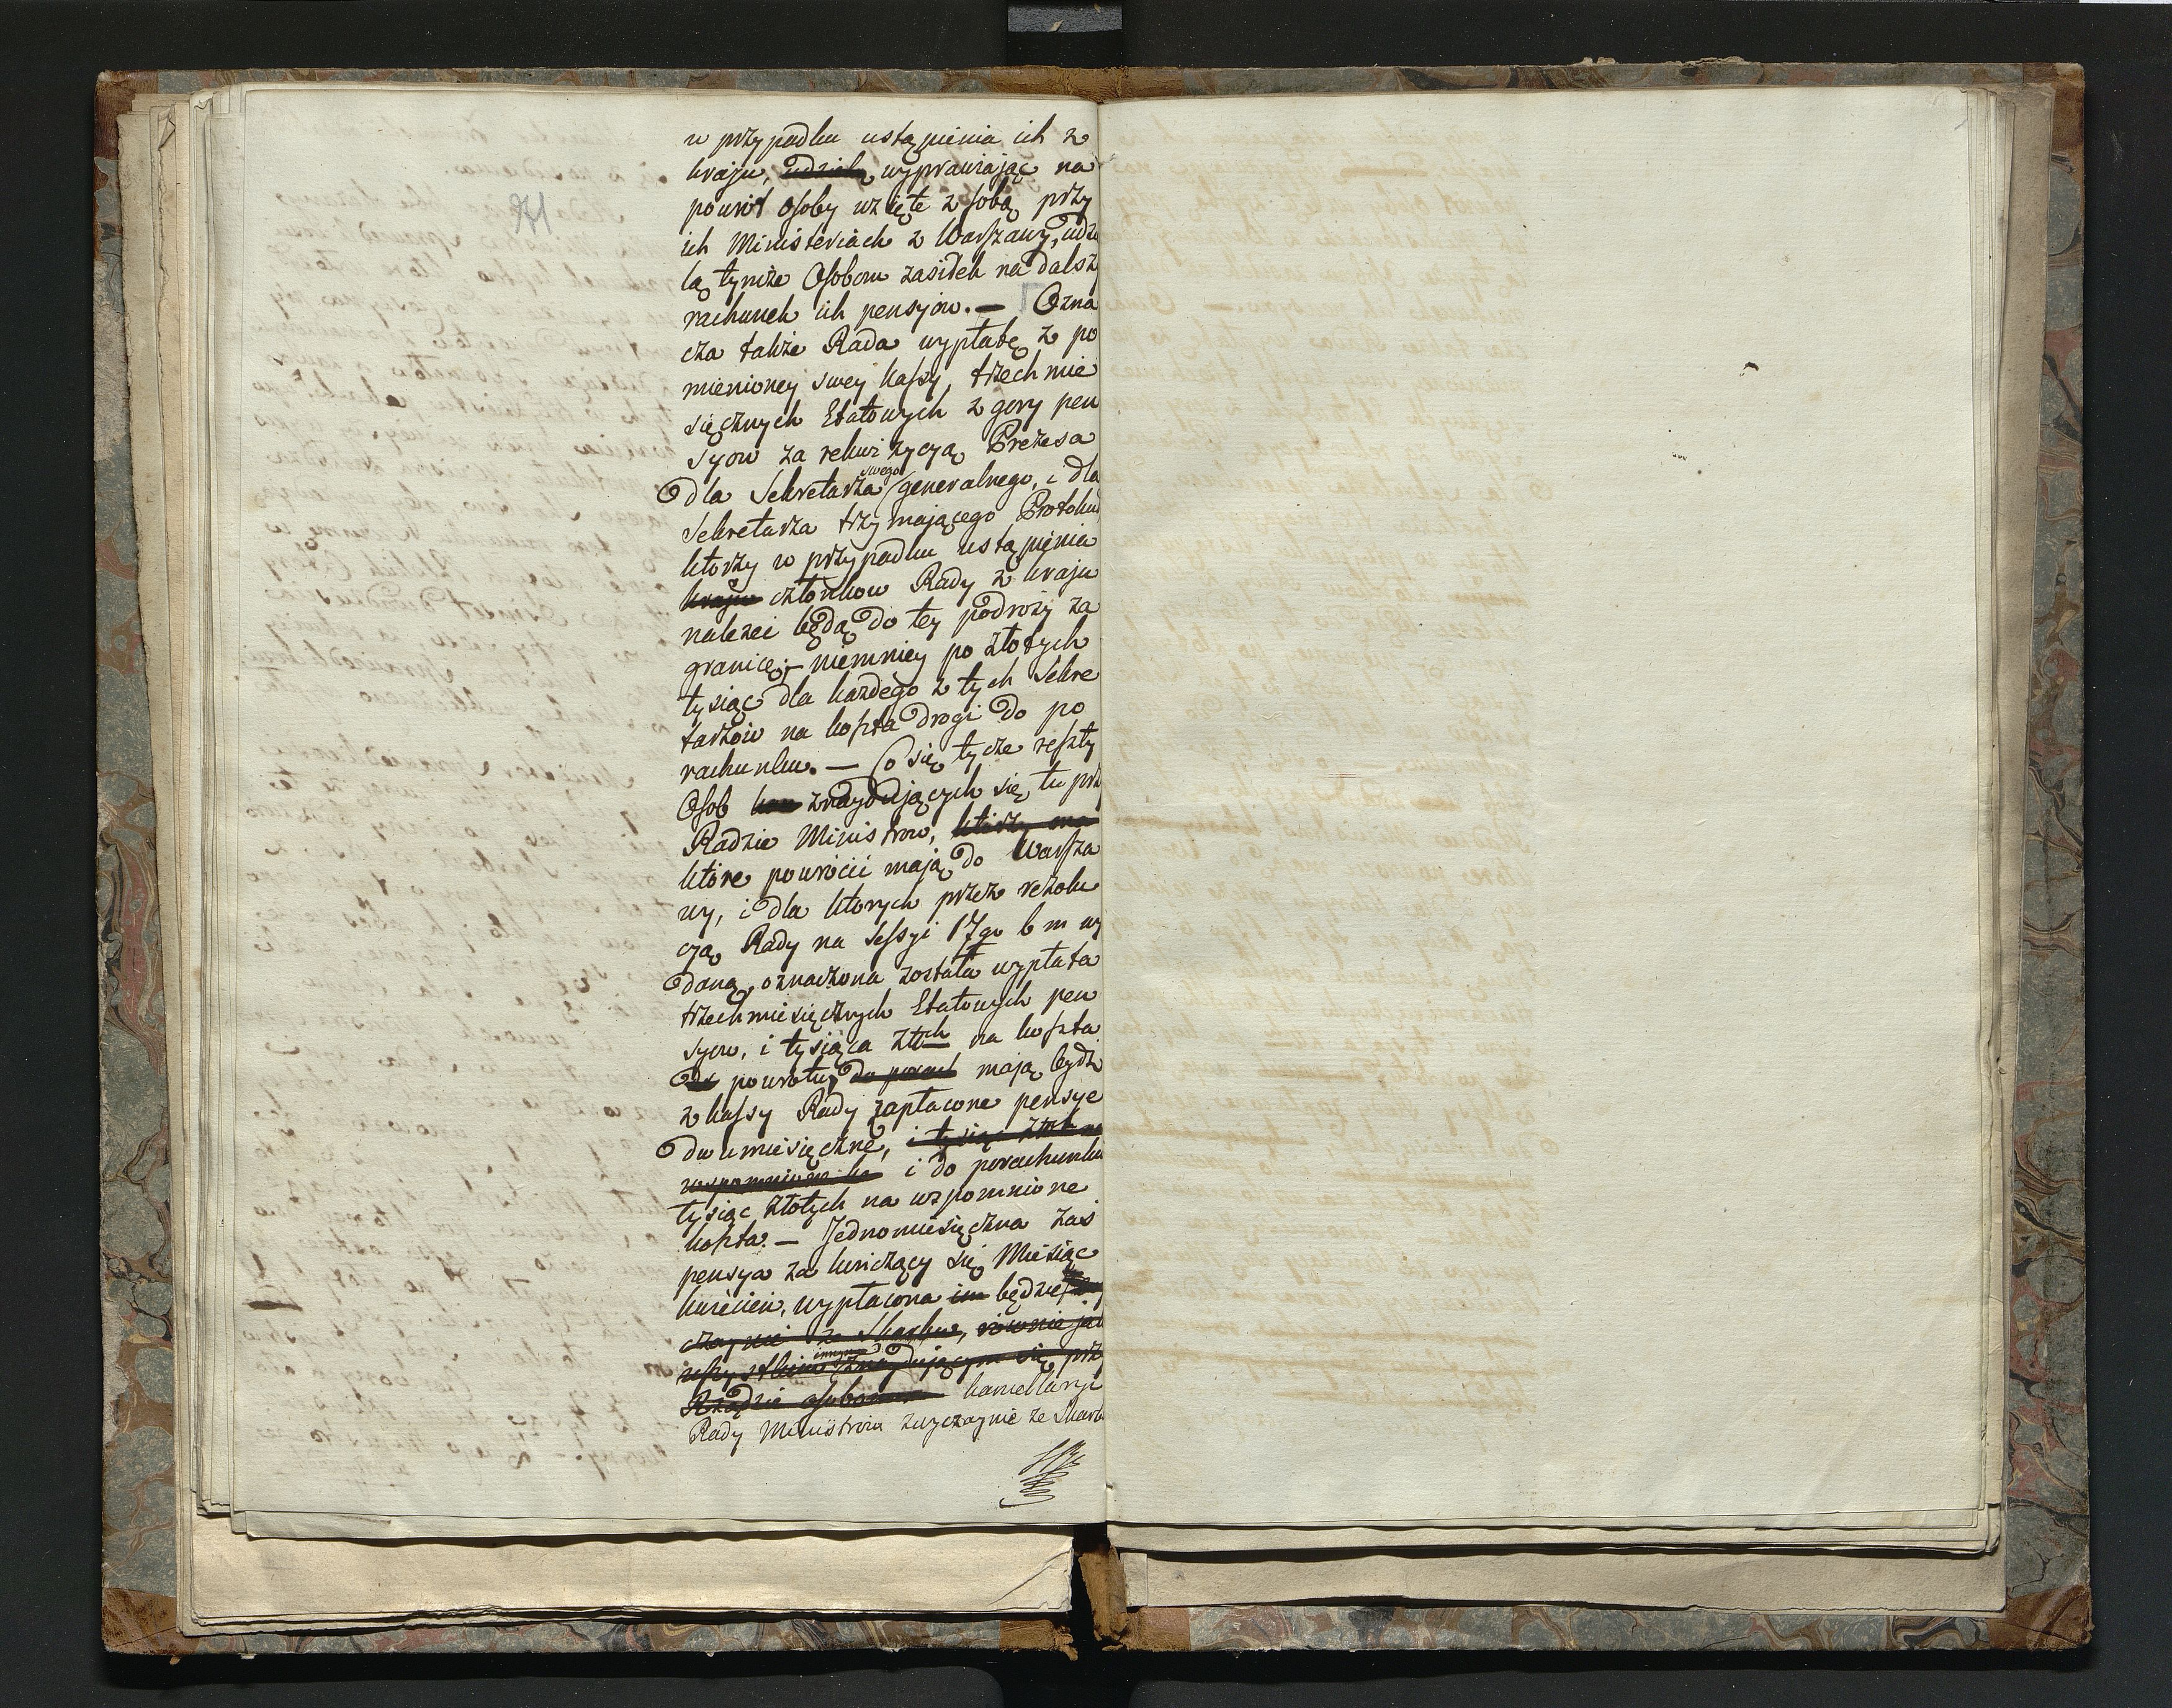 w przypadku ustąpienia ich z
kraju, udzielą wyprawiaiąc na
powrót osoby wzięte z sobą przy
ich Ministeriach z Warszawy, udzie
91
lą tymże Osobom zasiłek na dalsz
rachunek ich pensyow. — Ozna
cza także Rada wypłatę z po
mienioney swey kassy, trzech mie
sięcznych Etatowych z gory pen
syow za rekwizycyą Prezesa
swego
dla Sekretarza generalnego, i dla
Sekretarza trzymaiącego Protoku
ktorzy w przypadku ustąpienia
kraju członkow Rady z kraju
należeć będą do tey podroży za
granicę; niemniey po złotych
tysiąc dla każdego z tych Sekre
tarzow na koszta drogi do po
rachunku. — Co się tycze reszty
Osob znayduiących się tu prz
Radzie Ministrow, ktorzy ma
ktore powrócić maią do Warsza
wy, i dla ktorych przez rezolu
cyą Rady na Sessyi 17go b m wy
daną, oznaczona została wypłata
trzechmiesięcznych Etatowych pen
syow, i tysiąca złtch na koszta
powrotu, do porach maią bydź
z kassy Rady zapłacone pensye
dwumiesięczne, i tysiąc złtch na
wspomnione ko i do porachunku
tysiąc złotych na wspomnione
koszta. — Jednomiesięczna zaś
pensya za kończący się Miesiąc
kwiecień, wypłacona im będzie zwy
czaynie ze Skarbu, rownie jak
innym
wszystkim znayduiącym się prz
Rządzie osobom kancellaryi
Rady Ministrow zwyczaynie ze Skarb